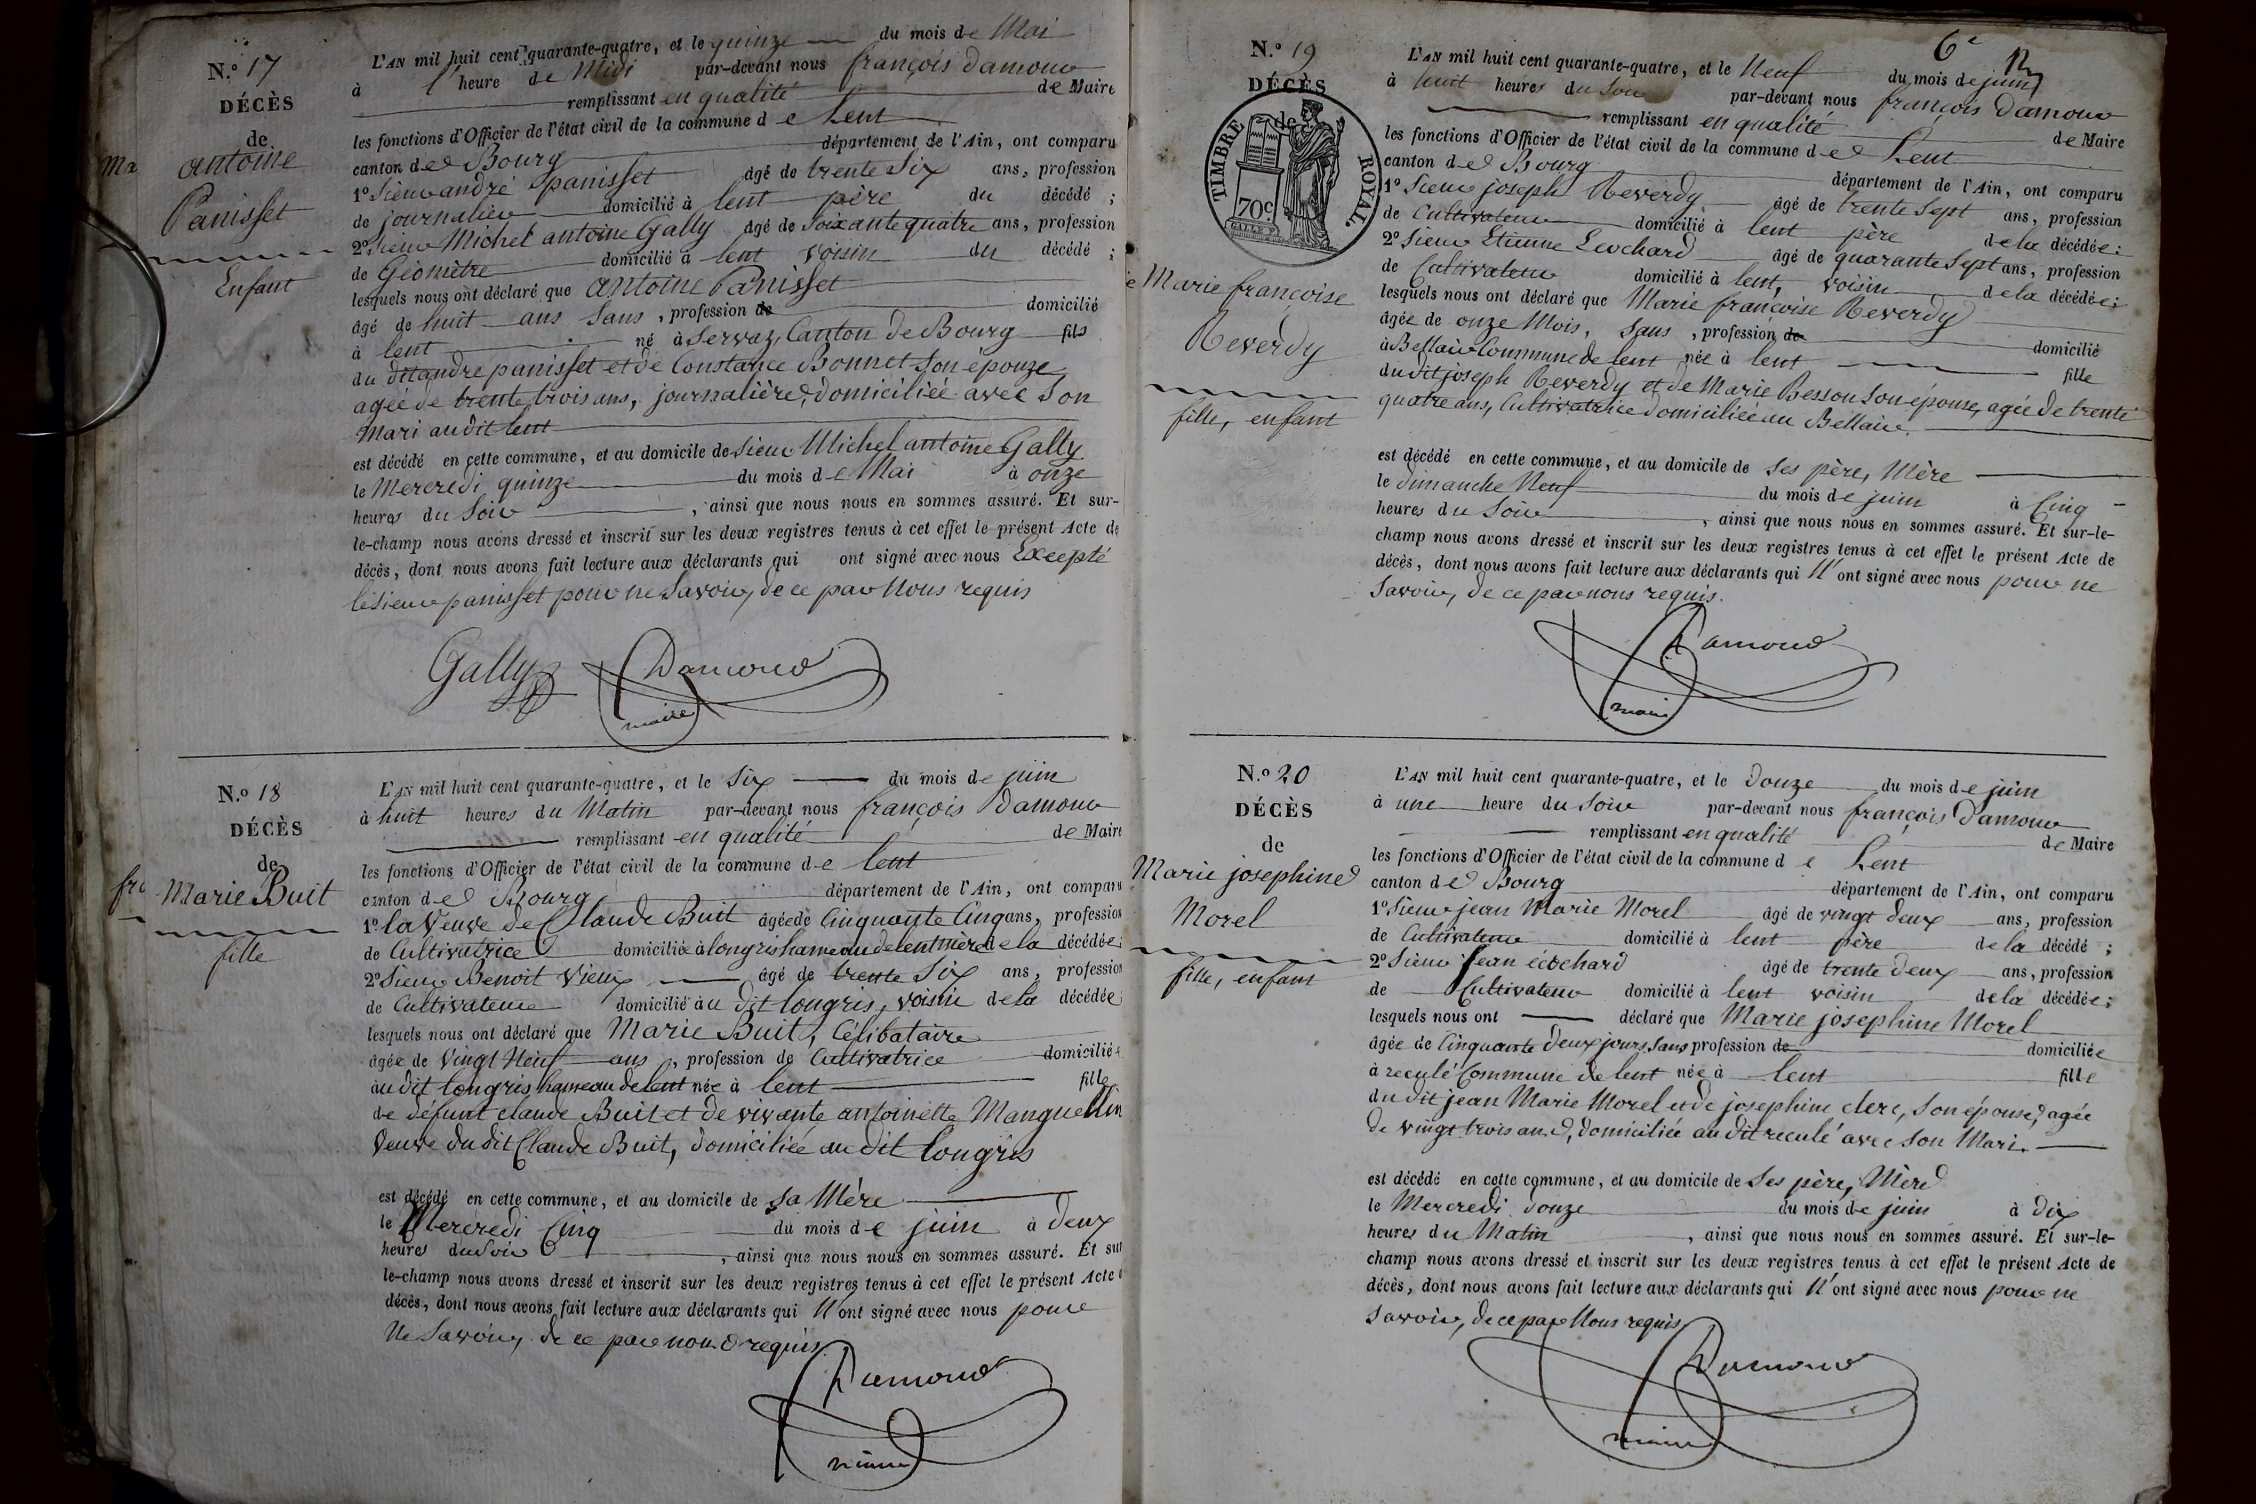 N.º 17
DÉCÈS
de
antoine
Panisset
Enfant
L'AN mil huit cent quarante-quatre, et le quinze du mois de Mai
à l'heure de Midi par-devant nous françois Damour
remplissant en qualité de Maire
les fonctions d'Officier de l'état civil de la commune d e Lent
canton d e Bourg département de l'Ain, ont comparu
1º Sieur andré panisset âgé de trente Six ans, profession
de journalier domicilié à lent père du décédé ;
2º Sieur Michel antoine Gally âgé de Soixante quatre ans, profession
de Géomètre domicilié à lent voisin du décédé ;
lesquels nous ont déclaré que antoine Panisset
âgé de huit ans Sans, profession de domicilié
à lent né à Servaz, Canton de Bourg fils
du dit andré panisset et de Constance Bonnet Son épouze
agée de trente trois ans, journalière, domiciliée avec Son
Mari au dit lent
est décédé en cette commune, et au domicile de Sieur Michel antoine Gally
le Mercredi quinze du mois d e Mai à onze
heures du Soir, ainsi que nous nous en sommes assuré. Et sur-
le-champ nous avons dressé et inscrit sur les deux registres tenus à cet effet le présent Acte de
décès, dont nous avons fait lecture aux déclarants qui ont signé avec nous Excepté
le Sieur panisset pour ne Savoir, de ce par Nous requis
Gally Damour
maire
N.º 18
DÉCÈS
de
Marie Buit
fille
L'AN mil huit cent quarante-quatre, et le Six du mois de juin
à huit heures du Matin par-devant nous françois Damour
remplissant en qualité de Maire
les fonctions d'Officier de l'état civil de la commune d e lent
canton d e Bourg département de l'Ain, ont comparu
1º la Veuve de Claude Buit âgée de Cinquante Cinq ans, profession
de Cultivatrice domiciliée à longris hameau de lent mère de la décédée ;
2º Sieur Benoit Vieux âgé de trente Six ans, profession
de Cultivateur domicilié au dit longris, voisin de la décédée
lesquels nous ont déclaré que Marie Buit, Célibataire
âgée de Vingt Neuf ans, profession de Cultivatrice domiciliée
au dit longris hameau de lent née à lent fille
de défunt claude Buit et de vivante antoinette Manguellin
Veuve du dit Claude Buit, domiciliée au dit longris
est décédé en cette commune, et au domicile de Sa Mère
le Mercredi Cinq du mois d e juin à deux
heures du Soir, ainsi que nous nous en sommes assuré. Et sur
le-champ nous avons dressé et inscrit sur les deux registres tenus à cet effet le présent Acte
décès, dont nous avons fait lecture aux déclarants qui N'ont signé avec nous pour
Ne Savoir, de ce par nous requis
Damour
maire
6e
N.º 19
DÉCÈS
de
TIMBRE ROYAL
70 c.
Marie françoise
Reverdy
fille, enfant
L'AN mil huit cent quarante-quatre, et le Neuf du mois de juin
à huit heures du Soir par-devant nous françois Damour
remplissant en qualité de Maire
les fonctions d'Officier de l'état civil de la commune d e Lent
canton d e Bourg département de l'Ain, ont comparu
1º Sieur joseph Reverdy âgé de trente Sept ans, profession
de Cultivateur domicilié à lent père de la décédée ;
2º Sieur Etienne Leochard âgé de quarante Sept ans, profession
de Cultivateur domicilié à lent, voisin de la décédée ;
lesquels nous ont déclaré que Marie françoise Reverdy
âgée de onze Mois, Sans, profession de domicilié
à Bellair Commune de lent née à lent fille
du dit joseph Reverdy et de Marie Besson Son épouse, agée de trente
quatre ans, Cultivatrice domiciliée au Bellair.
est décédé en cette commune, et au domicile de Ses père, Mère
le dimanche Neuf du mois d e juin à Cinq
heures du Soir, ainsi que nous nous en sommes assuré. Et sur-le-
champ nous avons dressé et inscrit sur les deux registres tenus à cet effet le présent Acte de
décès, dont nous avons fait lecture aux déclarants qui N'ont signé avec nous pour ne
Savoir, de ce par nous requis.
Damour
maire
N.º 20
DÉCÈS
de
Marie josephine
Morel
fille, enfant
L'AN mil huit cent quarante-quatre, et le Douze du mois d e juin
à une heure du Soir par-devant nous françois Damour
remplissant en qualité de Maire
les fonctions d'Officier de l'état civil de la commune d e Lent
canton d e Bourg département de l'Ain, ont comparu
1º Sieur jean Marie Morel âgé de vingt deux ans, profession
de Cultivateur domicilié à lent père de la décédé ;
2º Sieur Jean écochard âgé de trente deux ans, profession
de Cultivateur domicilié à lent voisin de la décédée ;
lesquels nous ont déclaré que Marie josephine Morel
âgée de Cinquante Deux jours, Sans profession de domiciliée
à reculé Commune de lent née à lent fille
du dit jean Marie Morel et de josephine clerc, Son épouse, agée
de vingt trois ans, domiciliée au dit reculé avec Son Mari.
est décédé en cette commune, et au domicile de Ses père, Mère
le Mercredi Douze du mois d e juin à Dix
heures du Matin, ainsi que nous nous en sommes assuré. Et sur-le-
champ nous avons dressé et inscrit sur les deux registres tenus à cet effet le présent Acte de
décès, dont nous avons fait lecture aux déclarants qui N'ont signé avec nous pour ne
Savoir, de ce par Nous requis
Damour
maire